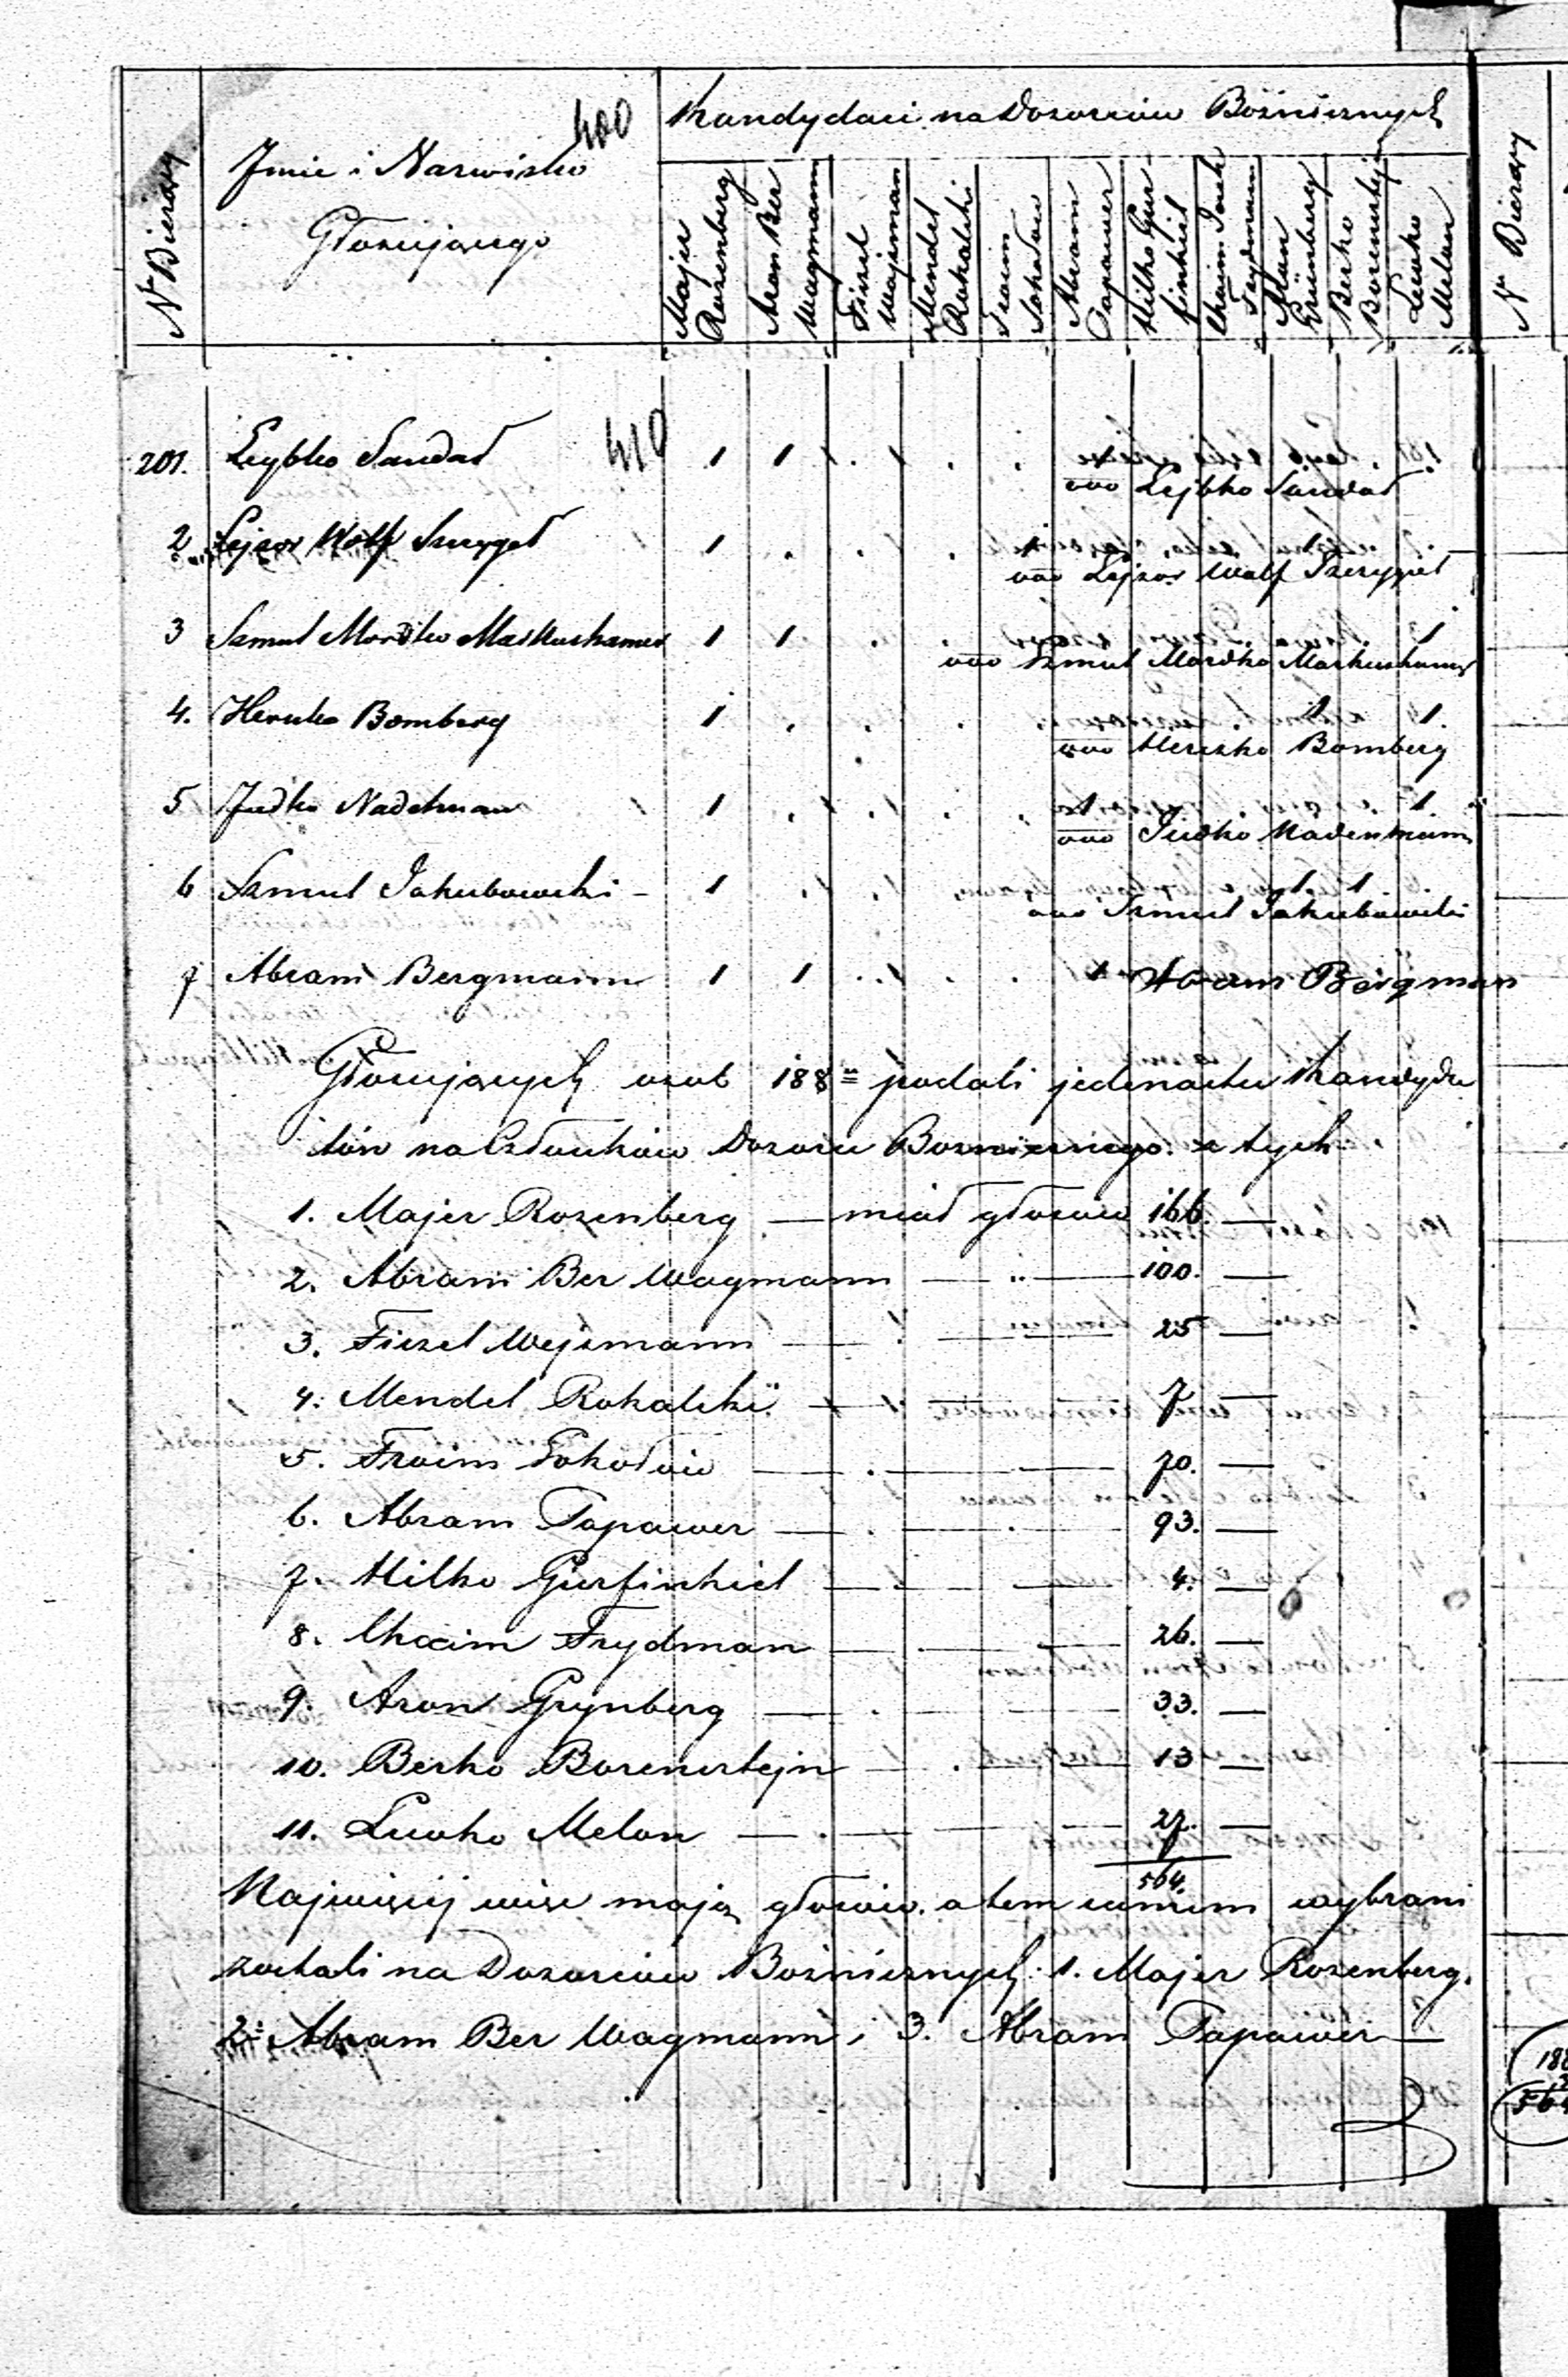 400
Nr Bierzący
Jmie i Nazwisko
Głosującego
Kandydaci na Dozorców Bóźnicznych
Majer Rozenberg
Abram Ber Wagmann
Fiszel Wajsman
Mendel Rokalski
Froim Sokołow
Abram Papawer
Hilko Gur finkiel
Chaim Frydman
Aron Grünberg
Berko Borensztejn
Lewko Melon
Nr Bierzący
410
201. Leybko Sandał 1 1 1
ooo Lejbko Sandał
2 Lejzor Wolf 1
ooo Lejzor Wolf
3 Szmul Mordko 1 1 1
ooo Szmul Mordko
4. Herszko Bomberg 1 1 1.
ooo Herszko Bomberg
5 Judko 1 1 1
ooo Judko
6 Szmul Jakubowski - 1 1 1
ooo Szmul Jakubowski
7 Abram Bergmann 1 1 1
Abram Bergman
Głosujących osob 188 podali jedenastu Kandyda
tów na Członków Dozoru Boznicznego. z tych
1. Majer Rozenberg — miał głosów 166. —
2. Abram Ber Wagmann — " — 100. —
3. Fiszel Wejsmann — 25 —
4. Mendel Rokalski — 7. —
5. Froim Sokołow — 70. —
6. Abram Papawer — 93. —
7. Hilko Gurfinkiel — 4. —
8. Chaim Frydman — 26. —
9. Aron Grynberg — 33. —
10. Berko Borensztejn — 13 —
11. Lewko Melon — 27. —
564.
Najwięcej więc mają głosów. a tem samem wybrani
zostali na Dozorców Bóźnicznych: 1. Majer Rozenberg.
2. Abram Ber Wagmann i 3. Abram Papawer —
564